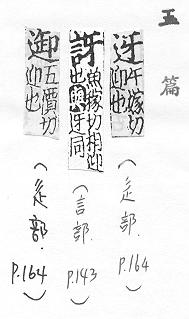 玉篇
迓 午嫁切迎也
(辵部. P.164)
訝 魚嫁切相迎也與迓同
(言部. P.143)
五價切迎也
(辵部. P.164)